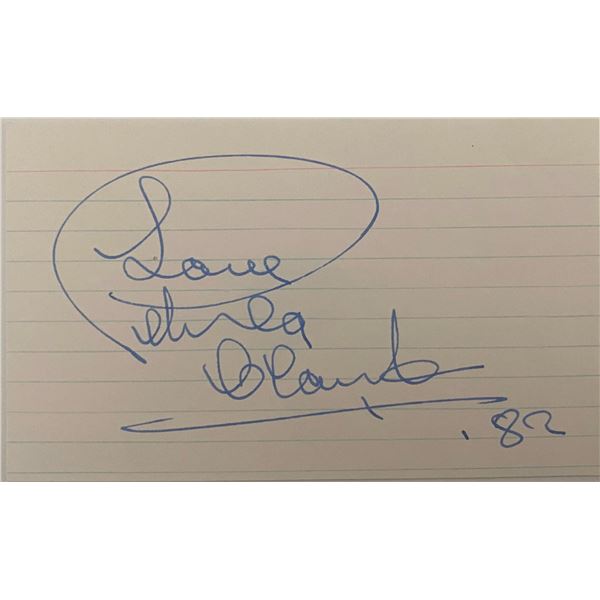 Love
Petula
Clark
.82